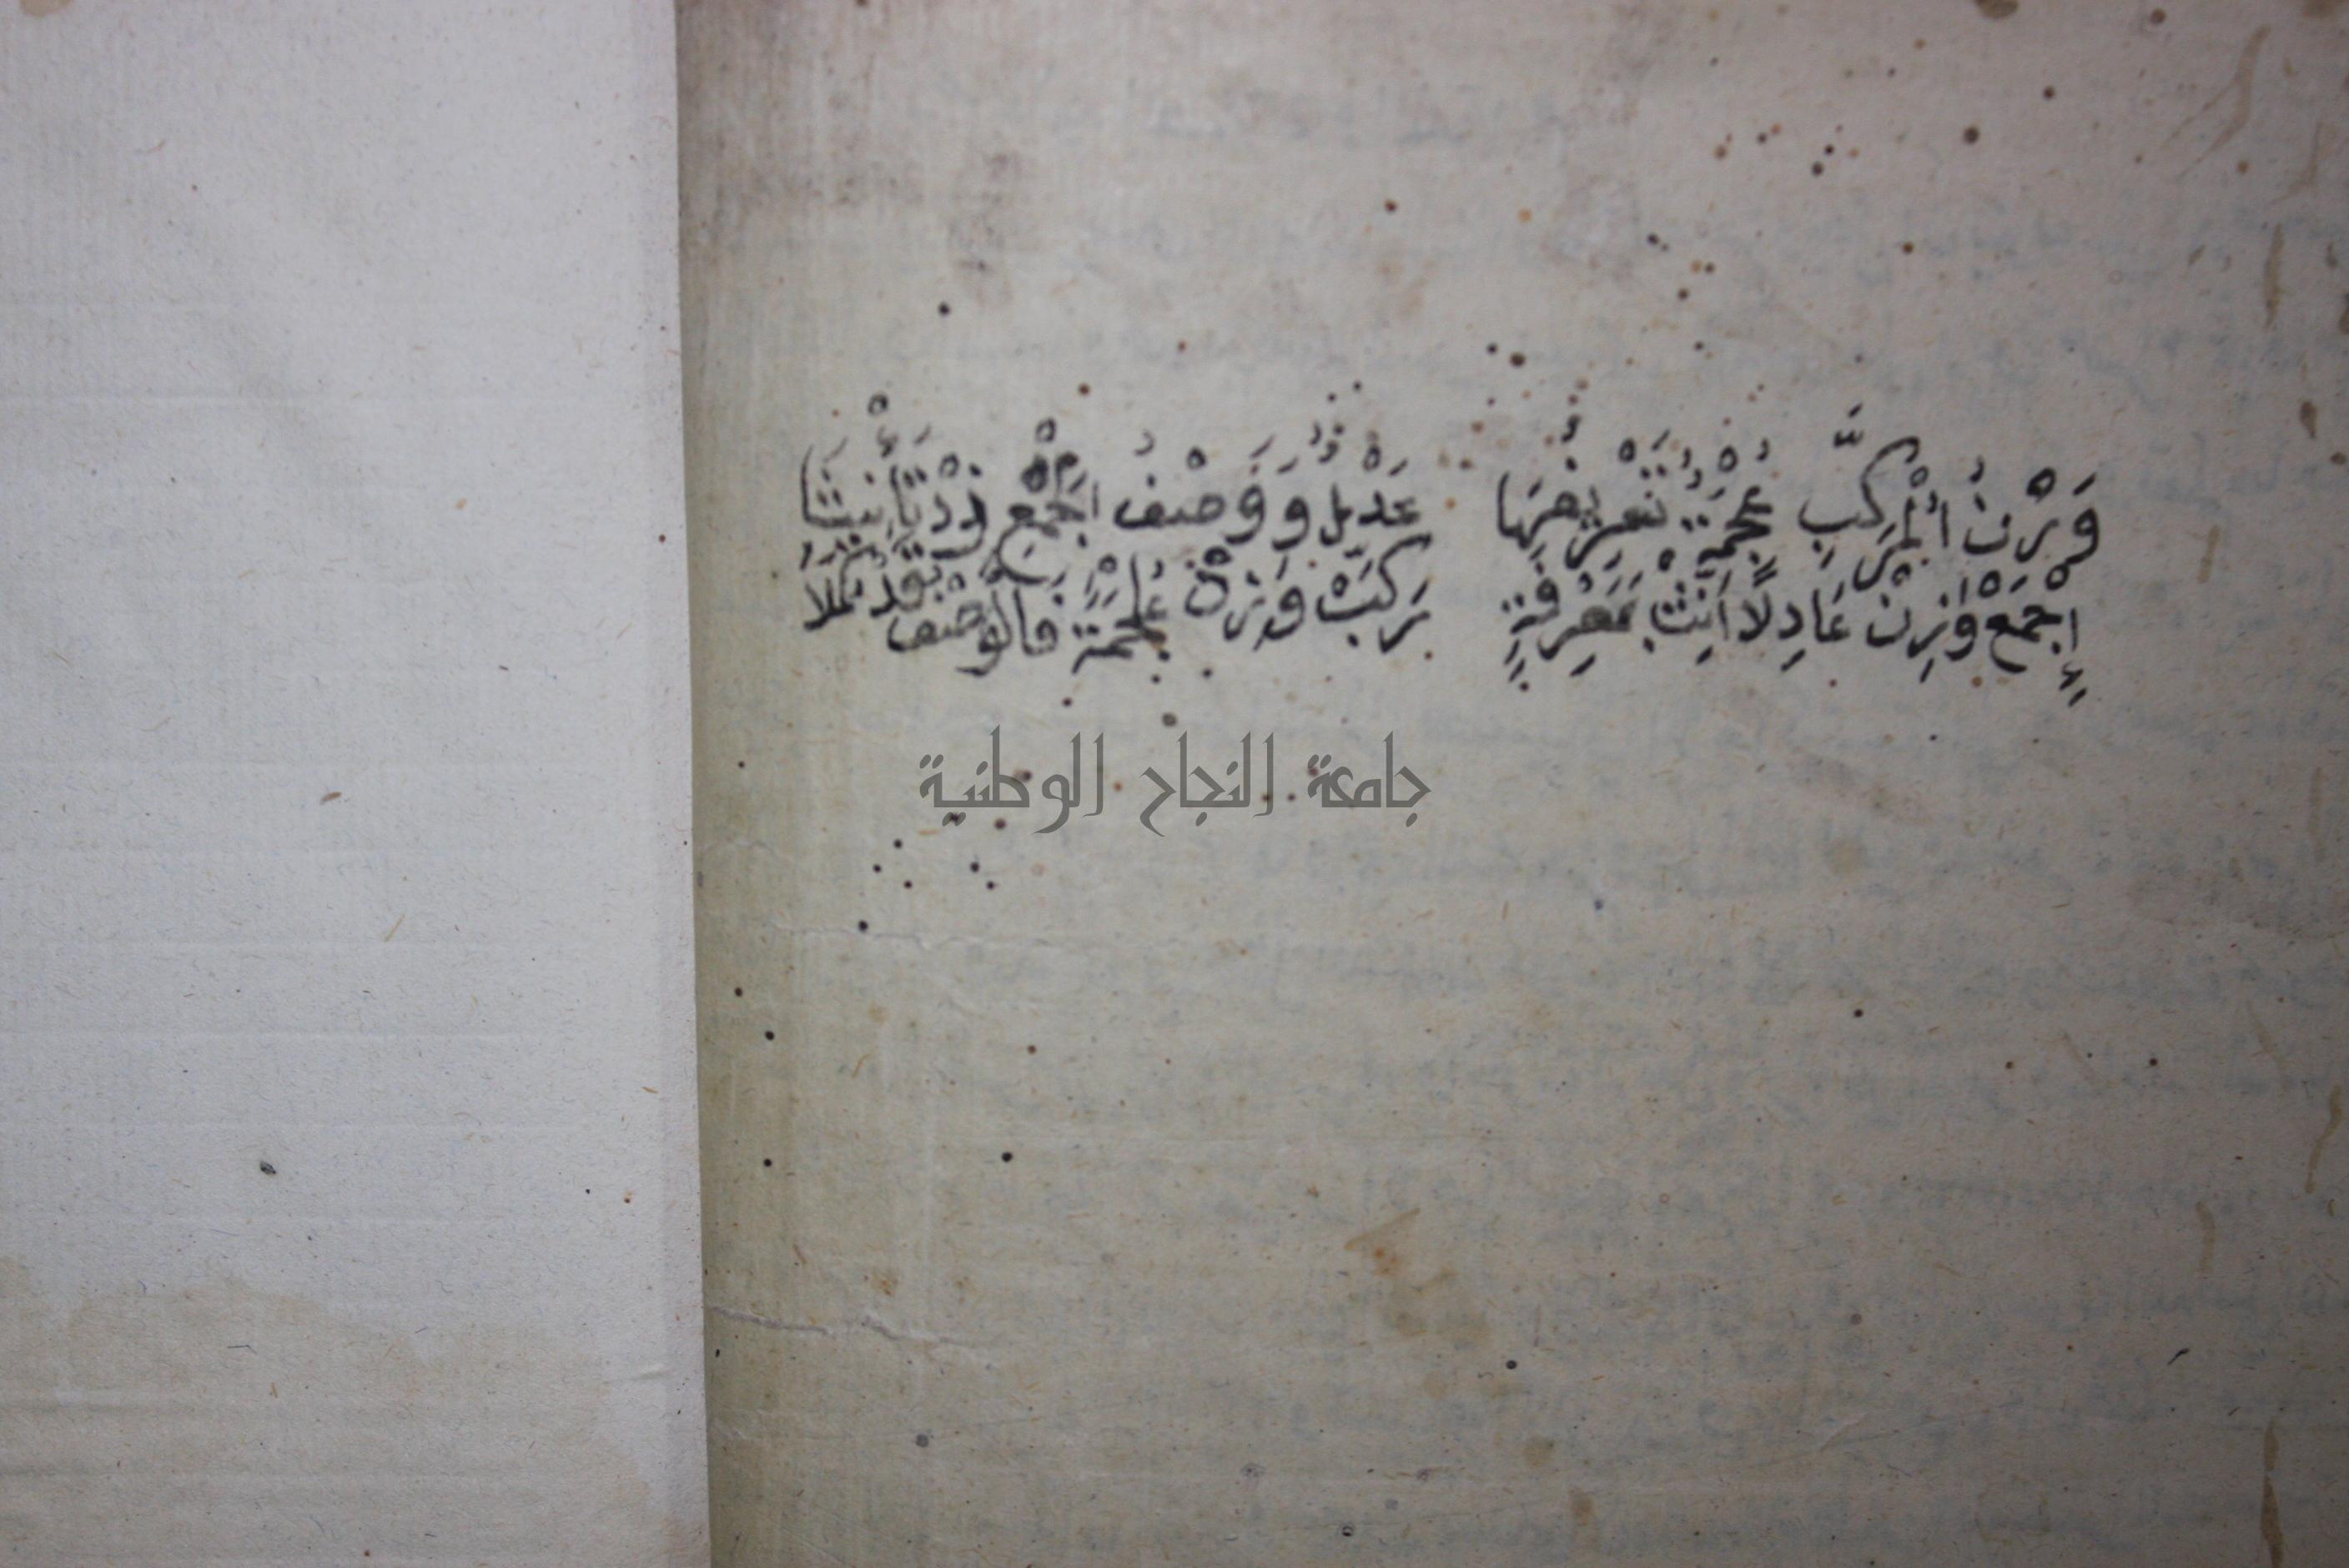 وَزْنُ الْمُرَكَّبِ عُجْمَةٌ تَعْرِيفُهَا عَدْلٌ وَوَصْفُ اجْمَعْ زِدْ تَأْنِيثَا
إِجْمَعْ وَزِنْ عَادِلًا أَنِّثْ بِمَعْرِفَةٍ رَكِّبْ وَزِدْ عُجْمَةً فَالْوَصْفُ قَدْ كَمُلَا
جامعة النجاح الوطنية